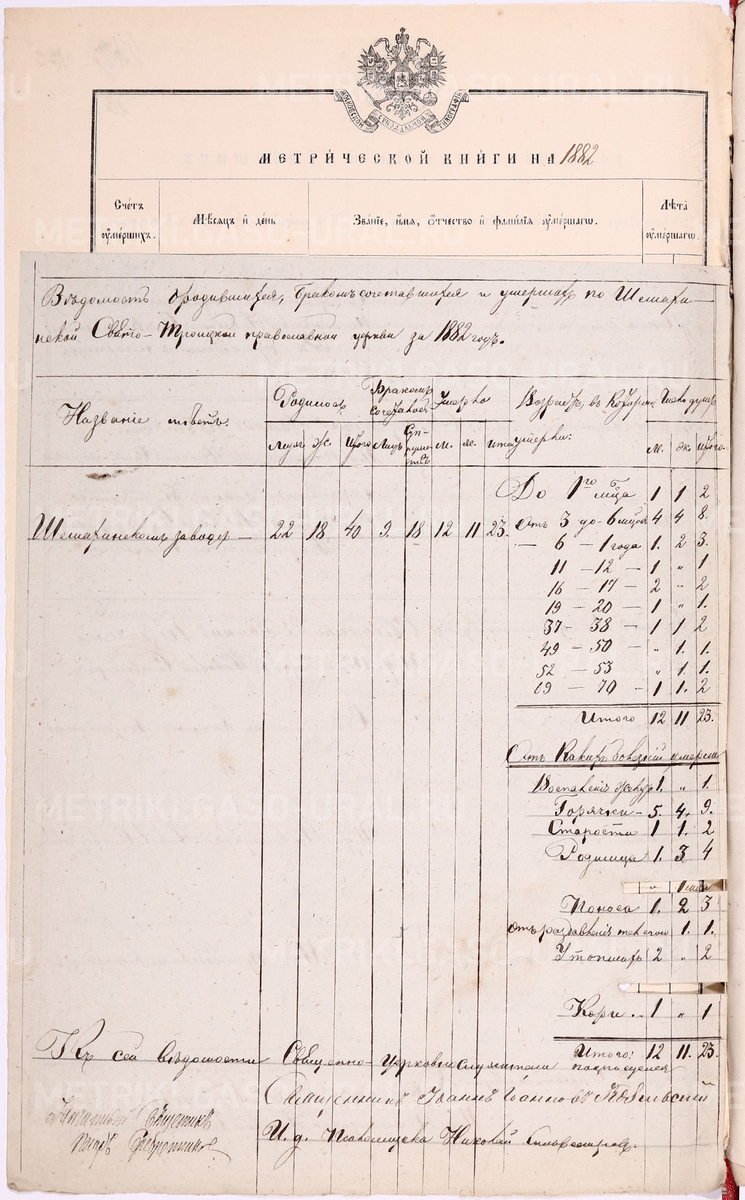 МЕТРИ́ЧЕСКОЙ КНИ́ГИ НА 1882
Сче́тъ ᲂу҆ме́ршихъ.
Мѣ́сяцъ и҆ де́нь
Зва́нїе, и҆́мя, ѻ҆́тчество и҆ фами́лїя ᲂу҆ме́ршагѡ.
Лѣ́та ᲂу҆ме́ршагѡ.
Вѣдомость родившихся, бракомъ сочетавшихся и умершихъ по Шемахин-
ской Свято-Троицкой православной церкви за 1882 годъ.
Названіе мѣстъ.
Родилось
Бракомъ сочеталось
Умерло
Возрастъ, въ которомъ умерли:
Число душъ
Муж. Ж. Итого Лицъ Супружествъ М. Ж. Итого М. Ж. Итого
Шемахинскомъ заводѣ — 22 18 40 9. 18 12 11 23.
До 1го м-ца 1 1 2
Отъ 3 до 6 мцевъ 4 4 8.
— 6 — 1 года 1. 2 3.
11 — 12 — 1 „ 1
16 — 17 — 2 „ 2
19 — 20 — 1 „ 1.
37 — 38 — 1 1 2
49 — 50 — „ 1. 1.
52 — 53 „ 1. 1.
69 — 70 - 1 1. 2
Итого 12 11 23.
Отъ какихъ болѣзней умерли
1. „ 1.
Горячки - 5. 4. 9.
Старости 1 1. 2
Родимца 1. 3 4
Поноса 1. 2 3
Отъ раздавленія 1. 1.
2 „ 2
Кори .. 1 „ 1
Итого: 12 11. 23.
Къ сей вѣдомости Священно-церковнослужители подписуемся
Священникъ Іоаннъ
И. д. Псаломщика Николай